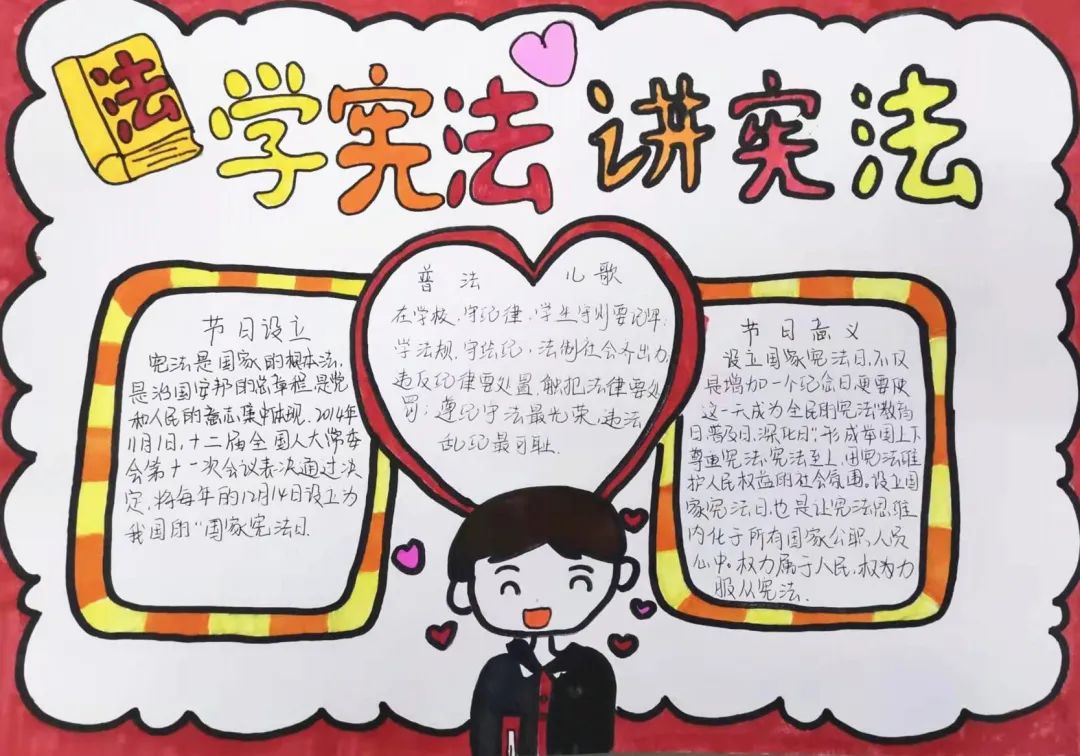 法
学宪法 讲宪法
节日设立
宪法是国家的根本法,
是治国安邦的总章程,是党
和人民的意志集中体现.2014年
11月1日,十二届全国人大常委
会第十一次会议表决通过决
定,将每年的12月14日设立为
我国的“国家宪法日.
普法 儿歌
在学校,守纪律,学生守则要记牢;
学法规,守法纪,法制社会齐出力
违反纪律要处置,触犯法律要处
罚;遵纪守法最光荣,违法
乱纪最可耻.
节日意义
设立国家宪法日,不仅
是增加一个纪念日,更要使
这一天成为全民的宪法“教育
日、普及日、深化日”形成举国上下
尊重宪法、宪法至上、用宪法维
护人民权益的社会氛围.设立国
家宪法日,也是让宪法思维
内化于所有国家公职人员
心中。权力属于人民,权力
服从宪法.